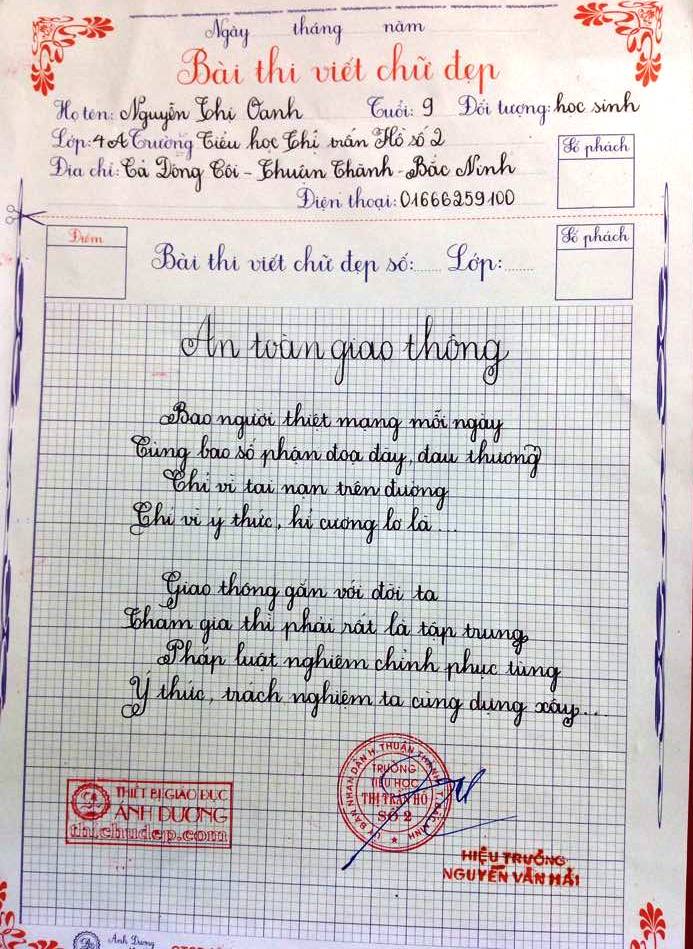 Ngày tháng năm
Bài thi viết chữ đẹp
Họ tên: Nguyễn Thị Oanh Tuổi: 9 Đối tượng: học sinh
Lớp: 4A Trường Tiểu học Thị trấn Hồ số 2
Số phách
Địa chỉ: Cả Đông Côi - Thuận Thành - Bắc Ninh
Điện thoại: 01666259100
Điểm
Số phách
Bài thi viết chữ đẹp số:...... Lớp:......
An toàn giao thông
Bao người thiệt mạng mỗi ngày
Cùng bao số phận đọa đày, đau thương
Chỉ vì tai nạn trên đường
Chỉ vì ý thức, kỉ cương lơ là...
Giao thông gắn với đời ta
Tham gia thì phải rất là tập trung
Pháp luật nghiêm chỉnh phục tùng
Ý thức, trách nghiệm ta cùng dựng xây...
THIẾT BỊ GIÁO DỤC
ÁNH DƯƠNG
thichudep.com
ỦY BAN NHÂN DÂN H. THUẬN THÀNH T. BẮC NINH
TRƯỜNG
TIỂU HỌC
THỊ TRẤN HỒ
SỐ 2
HIỆU TRƯỞNG
NGUYỄN VĂN HẢI
Ánh Dương